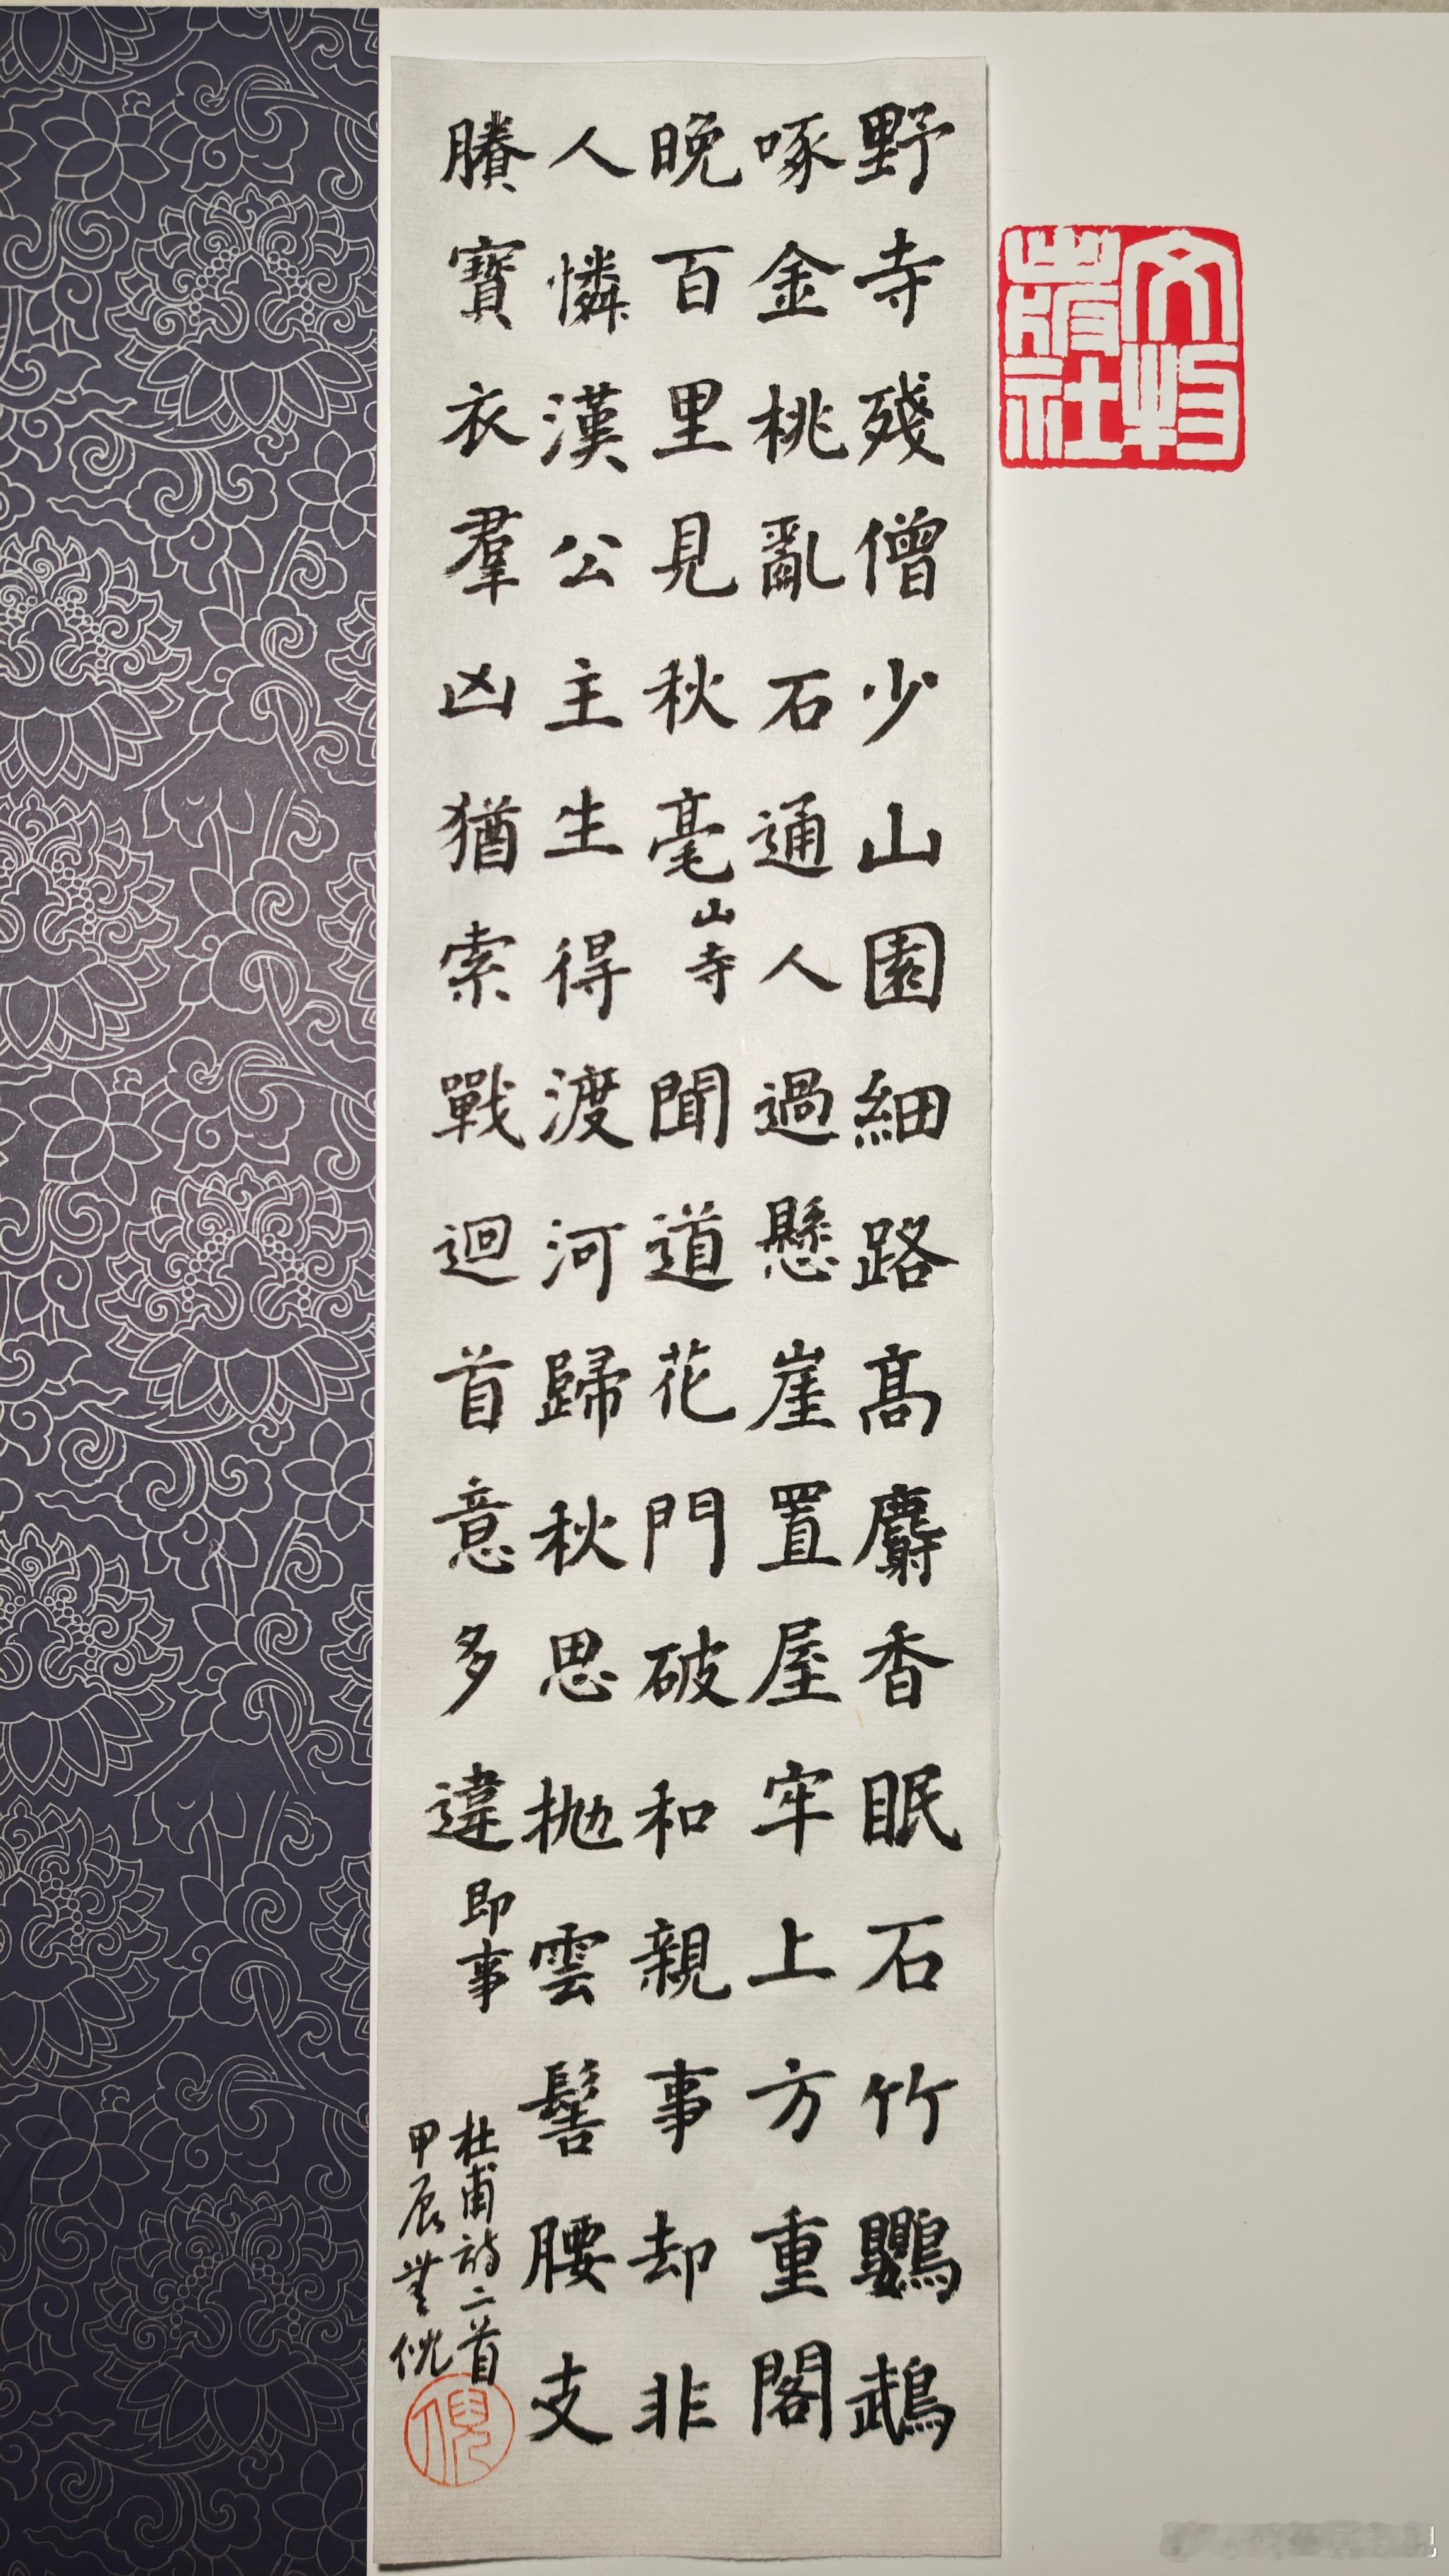 野寺殘僧少山園細路高麝香眠石竹鸚鵡
啄金桃亂石通人過懸崖置屋牢上方重閣
晚百里見秋毫山寺聞道花門破和親事却非
人憐漢公主生得渡河歸秋思拋雲髻腰支
賸寶衣羣凶猶索戰迴首意多違即事
杜甫詩二首
甲辰倪
倪
文物出版社